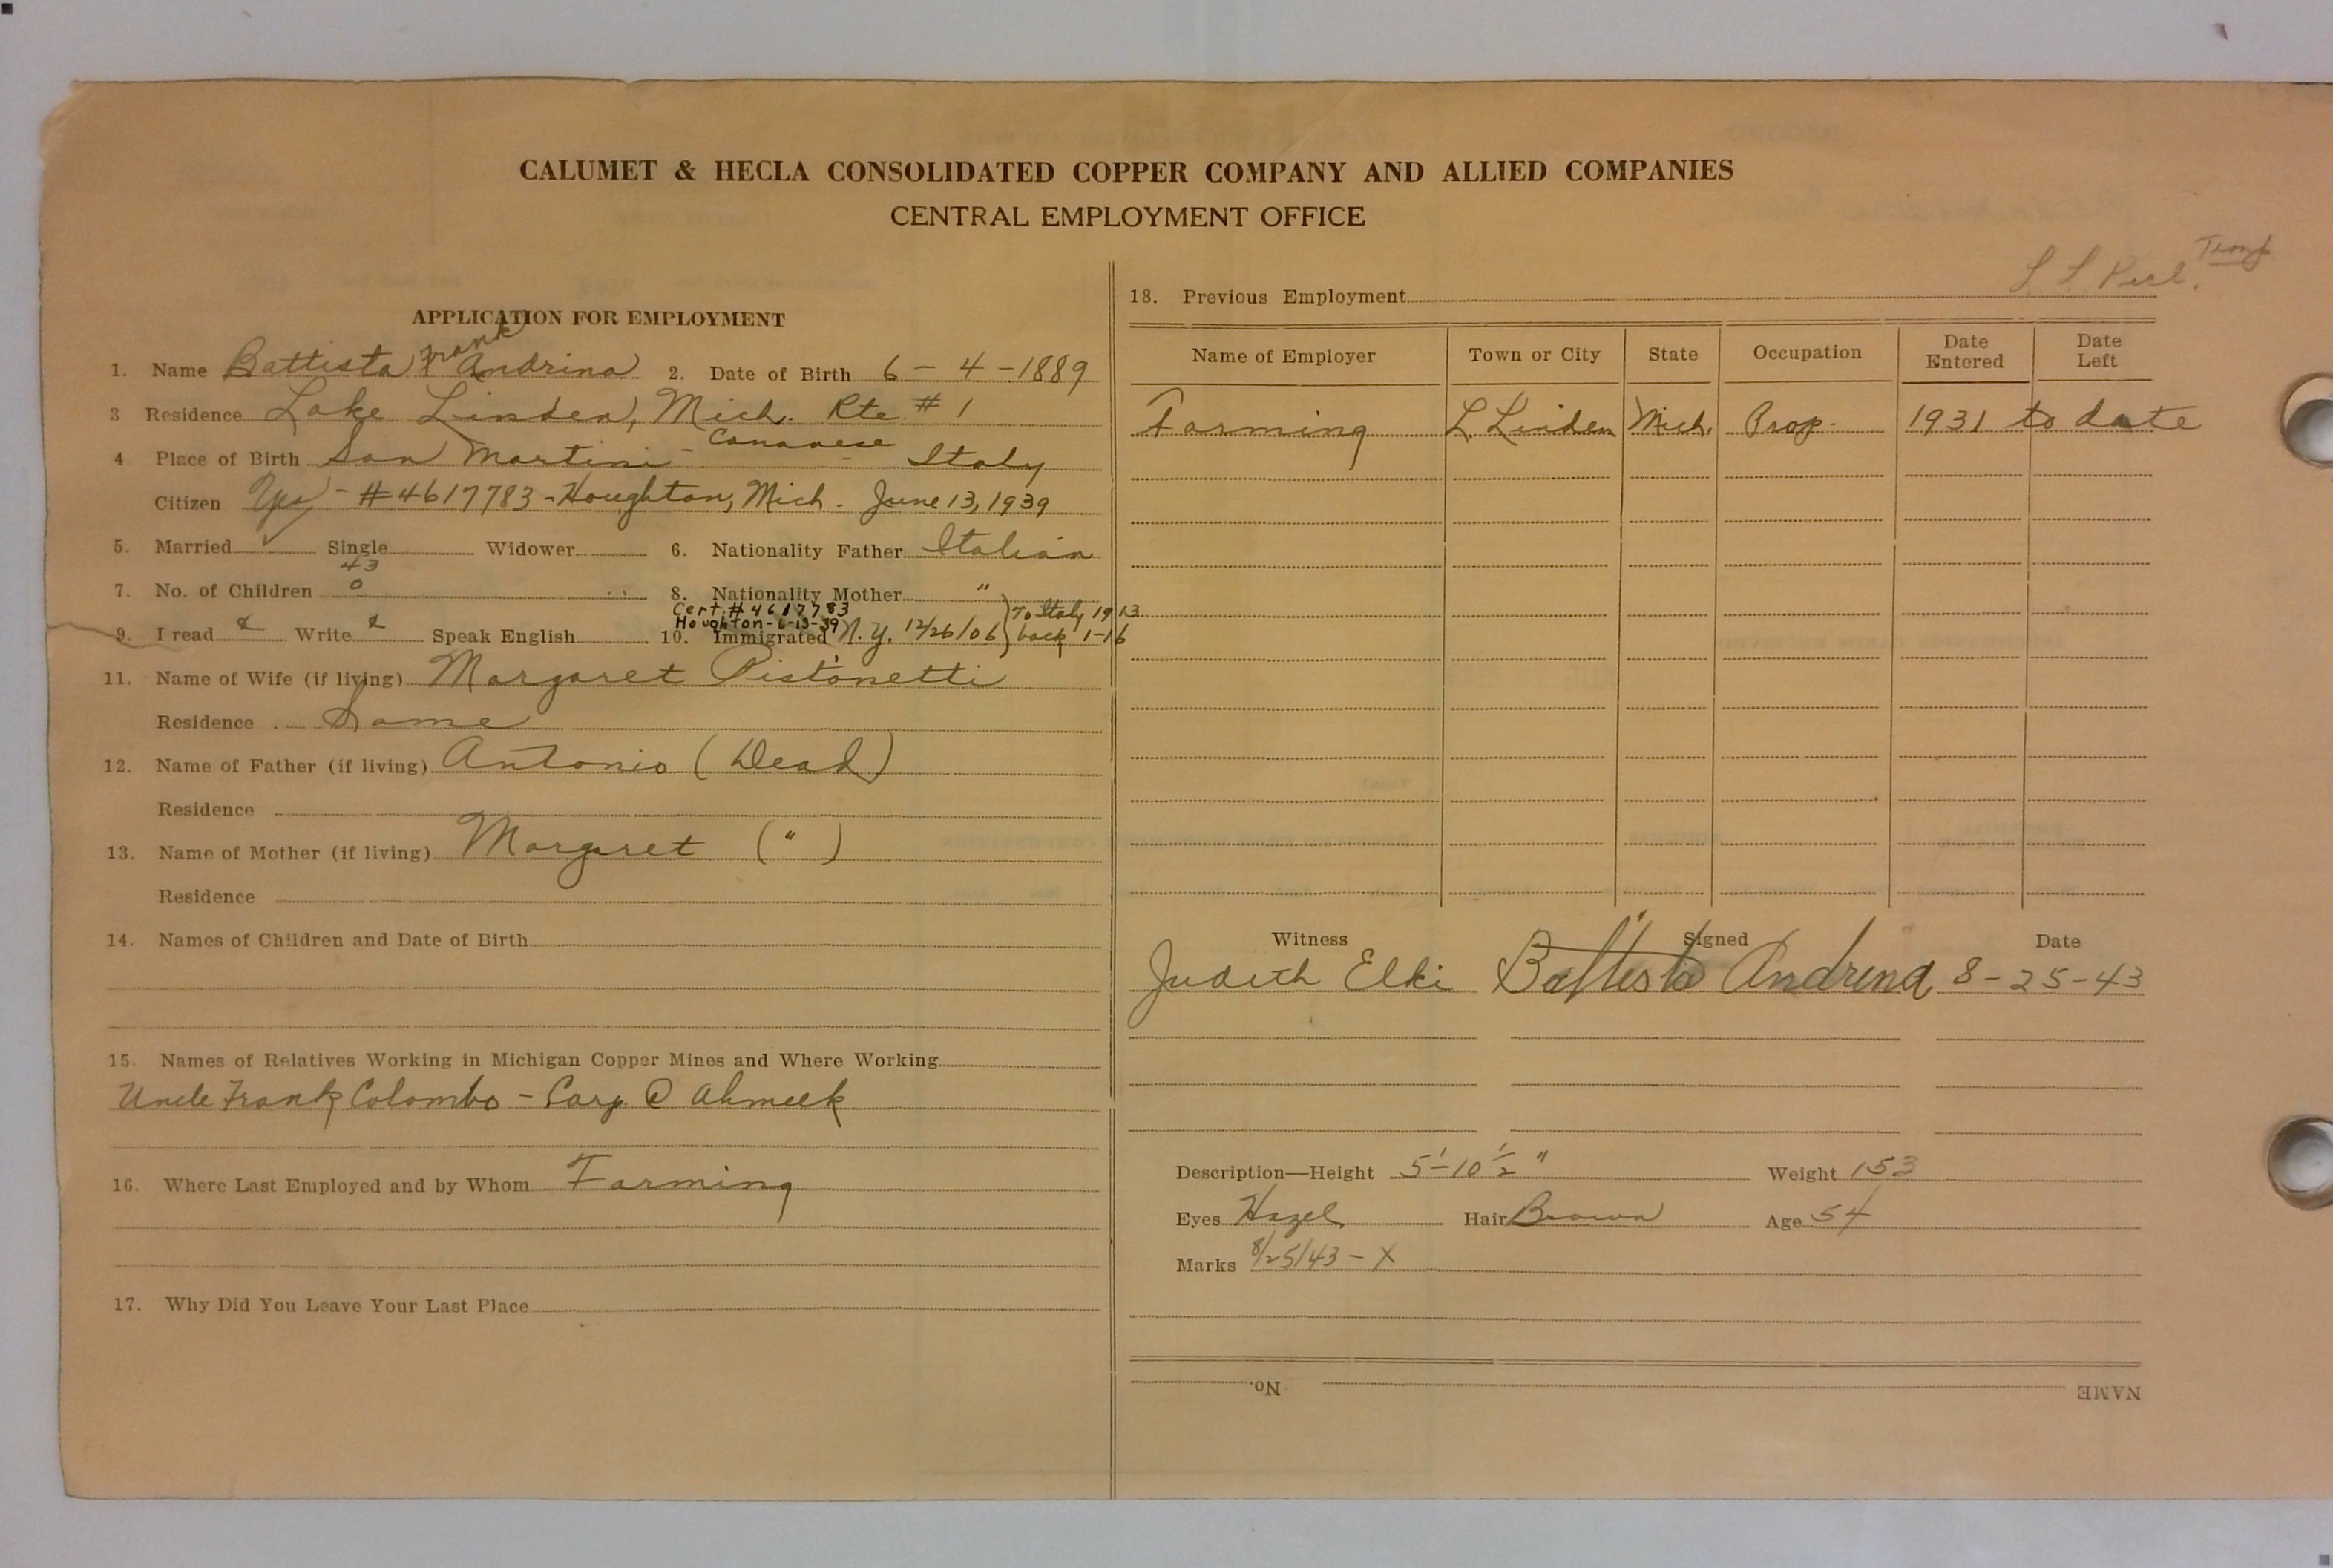 CALUMET & HECLA CONSOLIDATED COPPER COMPANY AND ALLIED COMPANIES
CENTRAL EMPLOYMENT OFFICE
APPLICATION FOR EMPLOYMENT
Frank
1. Name Battista Andrina 2. Date of Birth 6 - 4 - 1889
3 Residence Lake Linden, Mich. Rte # 1
4 Place of Birth San Martini - Canavese - Italy
Citizen Yes - # 4617783 - Houghton, Mich. June 13, 1939
5. Married ✓ Single Widower 6. Nationality Father Italian
43
7. No. of Children 0 8. Nationality Mother "
Cert. # 4617783
Houghton - 6-13-39
9. I read & Write & Speak English 10. Immigrated N.Y. 12/26/06 } To Italy 1913 back 1-16
11. Name of Wife (if living) Margaret Pistonetti
Residence Same
12. Name of Father (if living) Antonio (Dead)
Residence
13. Name of Mother (if living) Margaret ( " )
Residence
14. Names of Children and Date of Birth
15. Names of Relatives Working in Michigan Copper Mines and Where Working
Uncle Frank Colombo - Carp. @ Ahmeek
16. Where Last Employed and by Whom Farming
17. Why Did You Leave Your Last Place
L. L. Recl. Temp
18. Previous Employment
Name of Employer Town or City State Occupation Date Entered Date Left
Farming L. Linden Mich. Prop. 1931 to date
Witness Signed Date
Judith Elki Battista Andrina 8-25-43
Description—Height 5'-10 1/2" Weight 153
Eyes Hazel Hair Brown Age 54
Marks 8/25/43 - X
No. NAME